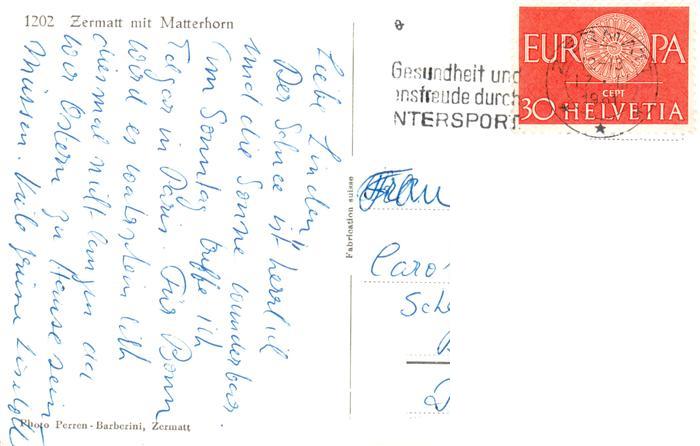 1202 Zermatt mit Matterhorn
Liebe Linden!
Der Schnee ist herrlich
und die Sonne wunderbar.
Am Sonntag treffe ich
Edgar in Paris. Für Bonn
wird es
diesmal nicht langen da
wir Ostern zu Hause sein
müssen. Viele Grüsse Liselott
Photo Perren-Barberini, Zermatt
Fabrication suisse
Gesundheit und
ensfreude durch
NTERSPORT
EUROPA
CEPT
30 HELVETIA
Frau
Caro
Sch
D